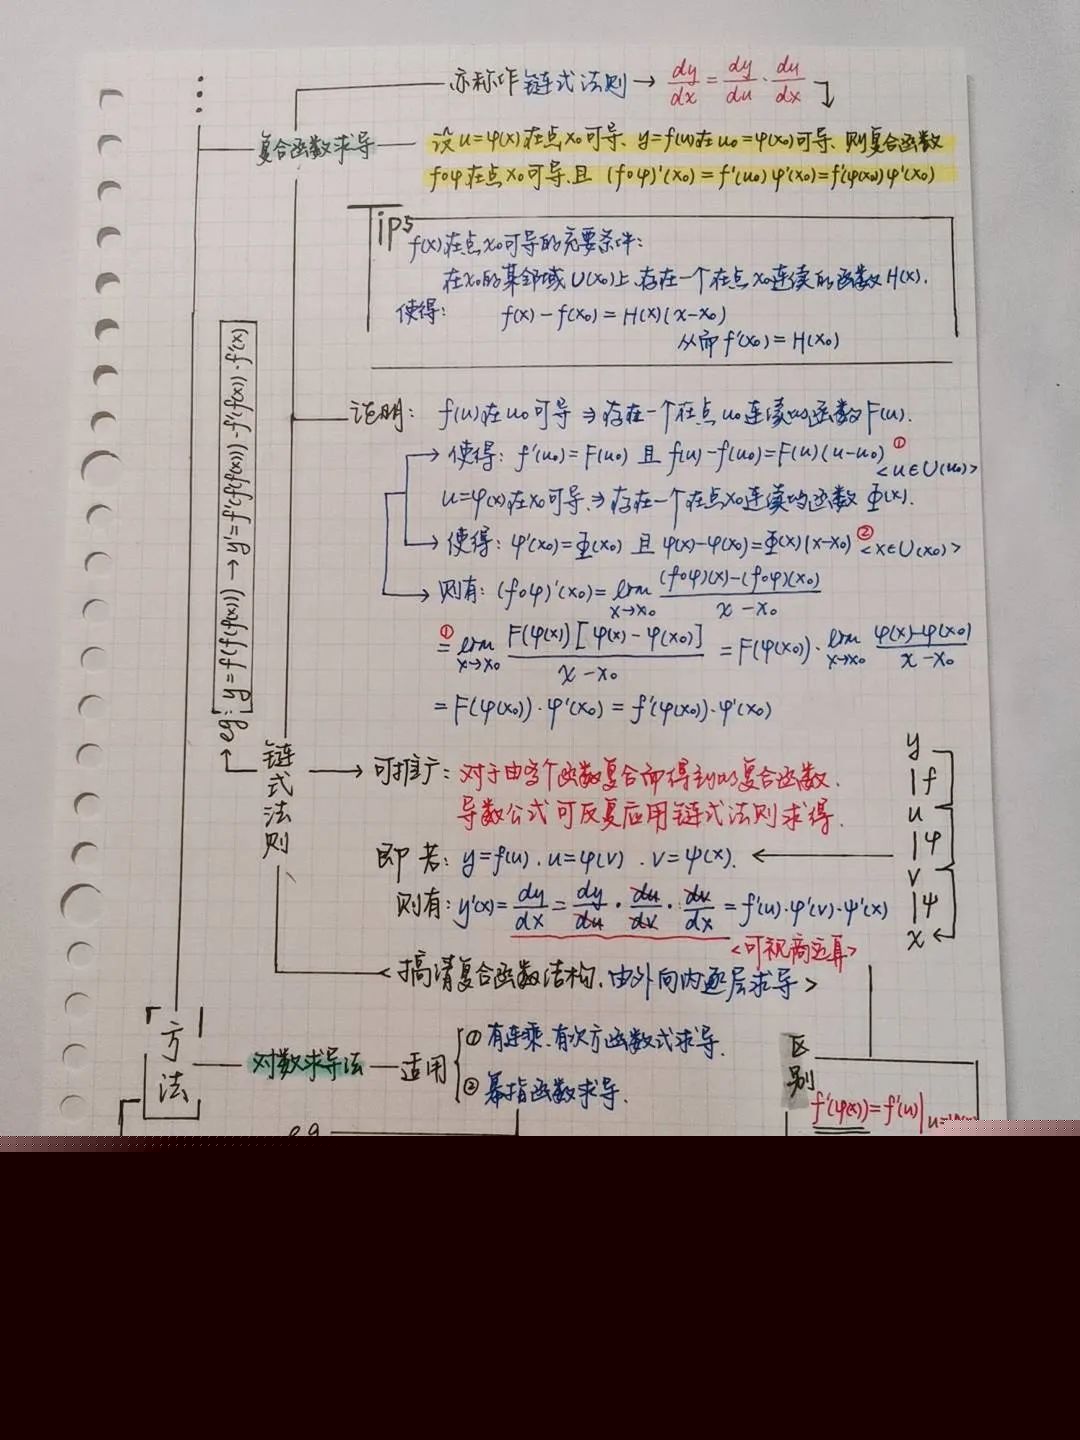 亦称作 链式法则 → dy/dx = dy/du · du/dx
复合函数求导
设 u=φ(x) 在点 x₀ 可导、y=f(u) 在 u₀=φ(x₀) 可导、则复合函数
f∘φ 在点 x₀ 可导、且 (f∘φ)'(x₀) = f'(u₀) φ'(x₀) = f'(φ(x₀)) φ'(x₀)
Tips
f(x) 在点 x₀ 可导的充要条件:
在 x₀ 的某邻域 U(x₀) 上、存在一个在点 x₀ 连续的函数 H(x).
使得: f(x) - f(x₀) = H(x)(x-x₀)
从而 f'(x₀) = H(x₀)
证明: f(u) 在 u₀ 可导 ⇒ 存在一个在点 u₀ 连续的函数 F(u).
→ 使得: f'(u₀) = F(u₀) 且 f(u) - f(u₀) = F(u)(u-u₀) ① <u∈U(u₀)>
u=φ(x) 在 x₀ 可导、⇒ 存在一个在点 x₀ 连续的函数 Φ(x).
→ 使得: φ'(x₀) = Φ(x₀) 且 φ(x) - φ(x₀) = Φ(x)(x-x₀) ② <x∈U(x₀)>
→ 则有: (f∘φ)'(x₀) = lim x→x₀ (f∘φ)(x)-(f∘φ)(x₀) / x-x₀
①= lim x→x₀ F(φ(x))[φ(x)-φ(x₀)] / x-x₀ = F(φ(x₀)) · lim x→x₀ φ(x)-φ(x₀) / x-x₀
= F(φ(x₀)) · φ'(x₀) = f'(φ(x₀)) · φ'(x₀)
eg: y=f(f(f(x))) → y'=f'(f(f(x)))·f'(f(x))·f'(x)
链式法则
→ 可推广: 对于由多个函数复合而得到的复合函数.
导数公式可反复应用链式法则求得.
即 若: y=f(u). u=φ(v). v=ψ(x). ←
则有: y'(x) = dy/dx = dy/du · du/dv · dv/dx = f'(u)·φ'(v)·ψ'(x)
<可视商运算>
y
|f
u
|φ
v
|ψ
x
<搞清复合函数结构、由外向内逐层求导>
「方法」
对数求导法 — 适用
① 有连乘、有次方函数式求导.
② 幂指函数求导.
区别
f'(φ(x)) = f'(u)|
eg